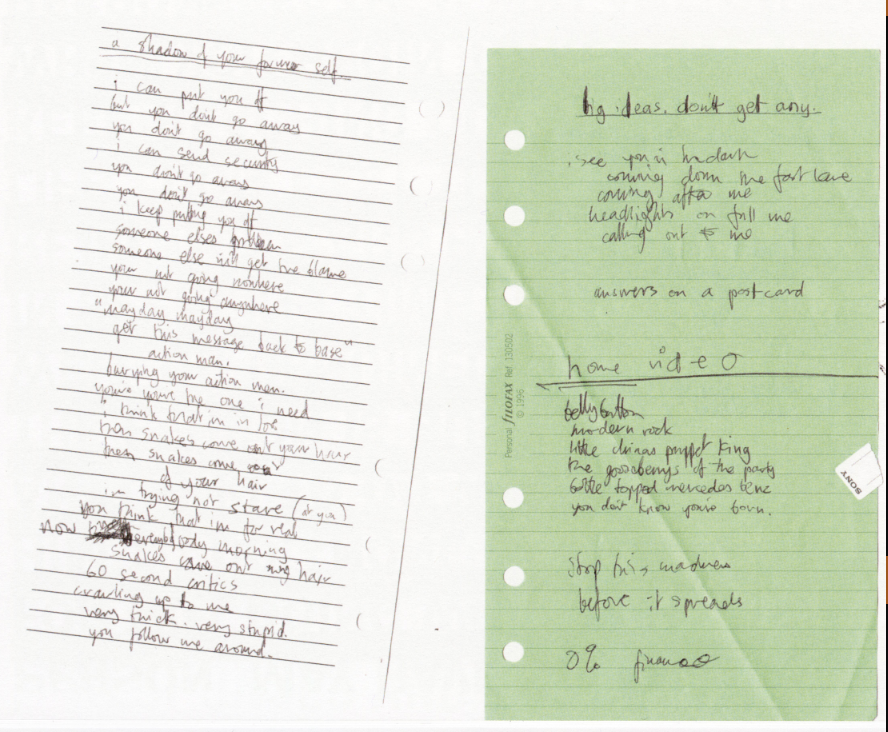 a shadow of your former self
i can put you off
but you dont go away
you dont go away
i can send security
you dont go away
you dont go away
i keep putting you off
someone elses problem
someone else will get the blame
your not going nowhere
your not going anywhere
"mayday mayday
get this message back to base"
action man.
burying your action man.
you're the one i need
i think that im in love
then snakes come out your hair
then snakes come
of your hair
im trying not stare (at you)
you think that im for real
now everybody morning
snakes come out my hair
60 second critics
crawling up to me
very thick. very stupid.
you follow me around.
big ideas. don't get any.
i see you in the dark
coming down the fast lane
coming after me
headlights on full me
calling out to me
answers on a postcard
home video
bellybutton
modern rock
little chinas puppet king
the gooseberrys of the party
topped mercedes benz
you dont know youre born.
stop this madness
before it spreads
0% finance
Personal filofax Ref 130502
© 1996
SONY